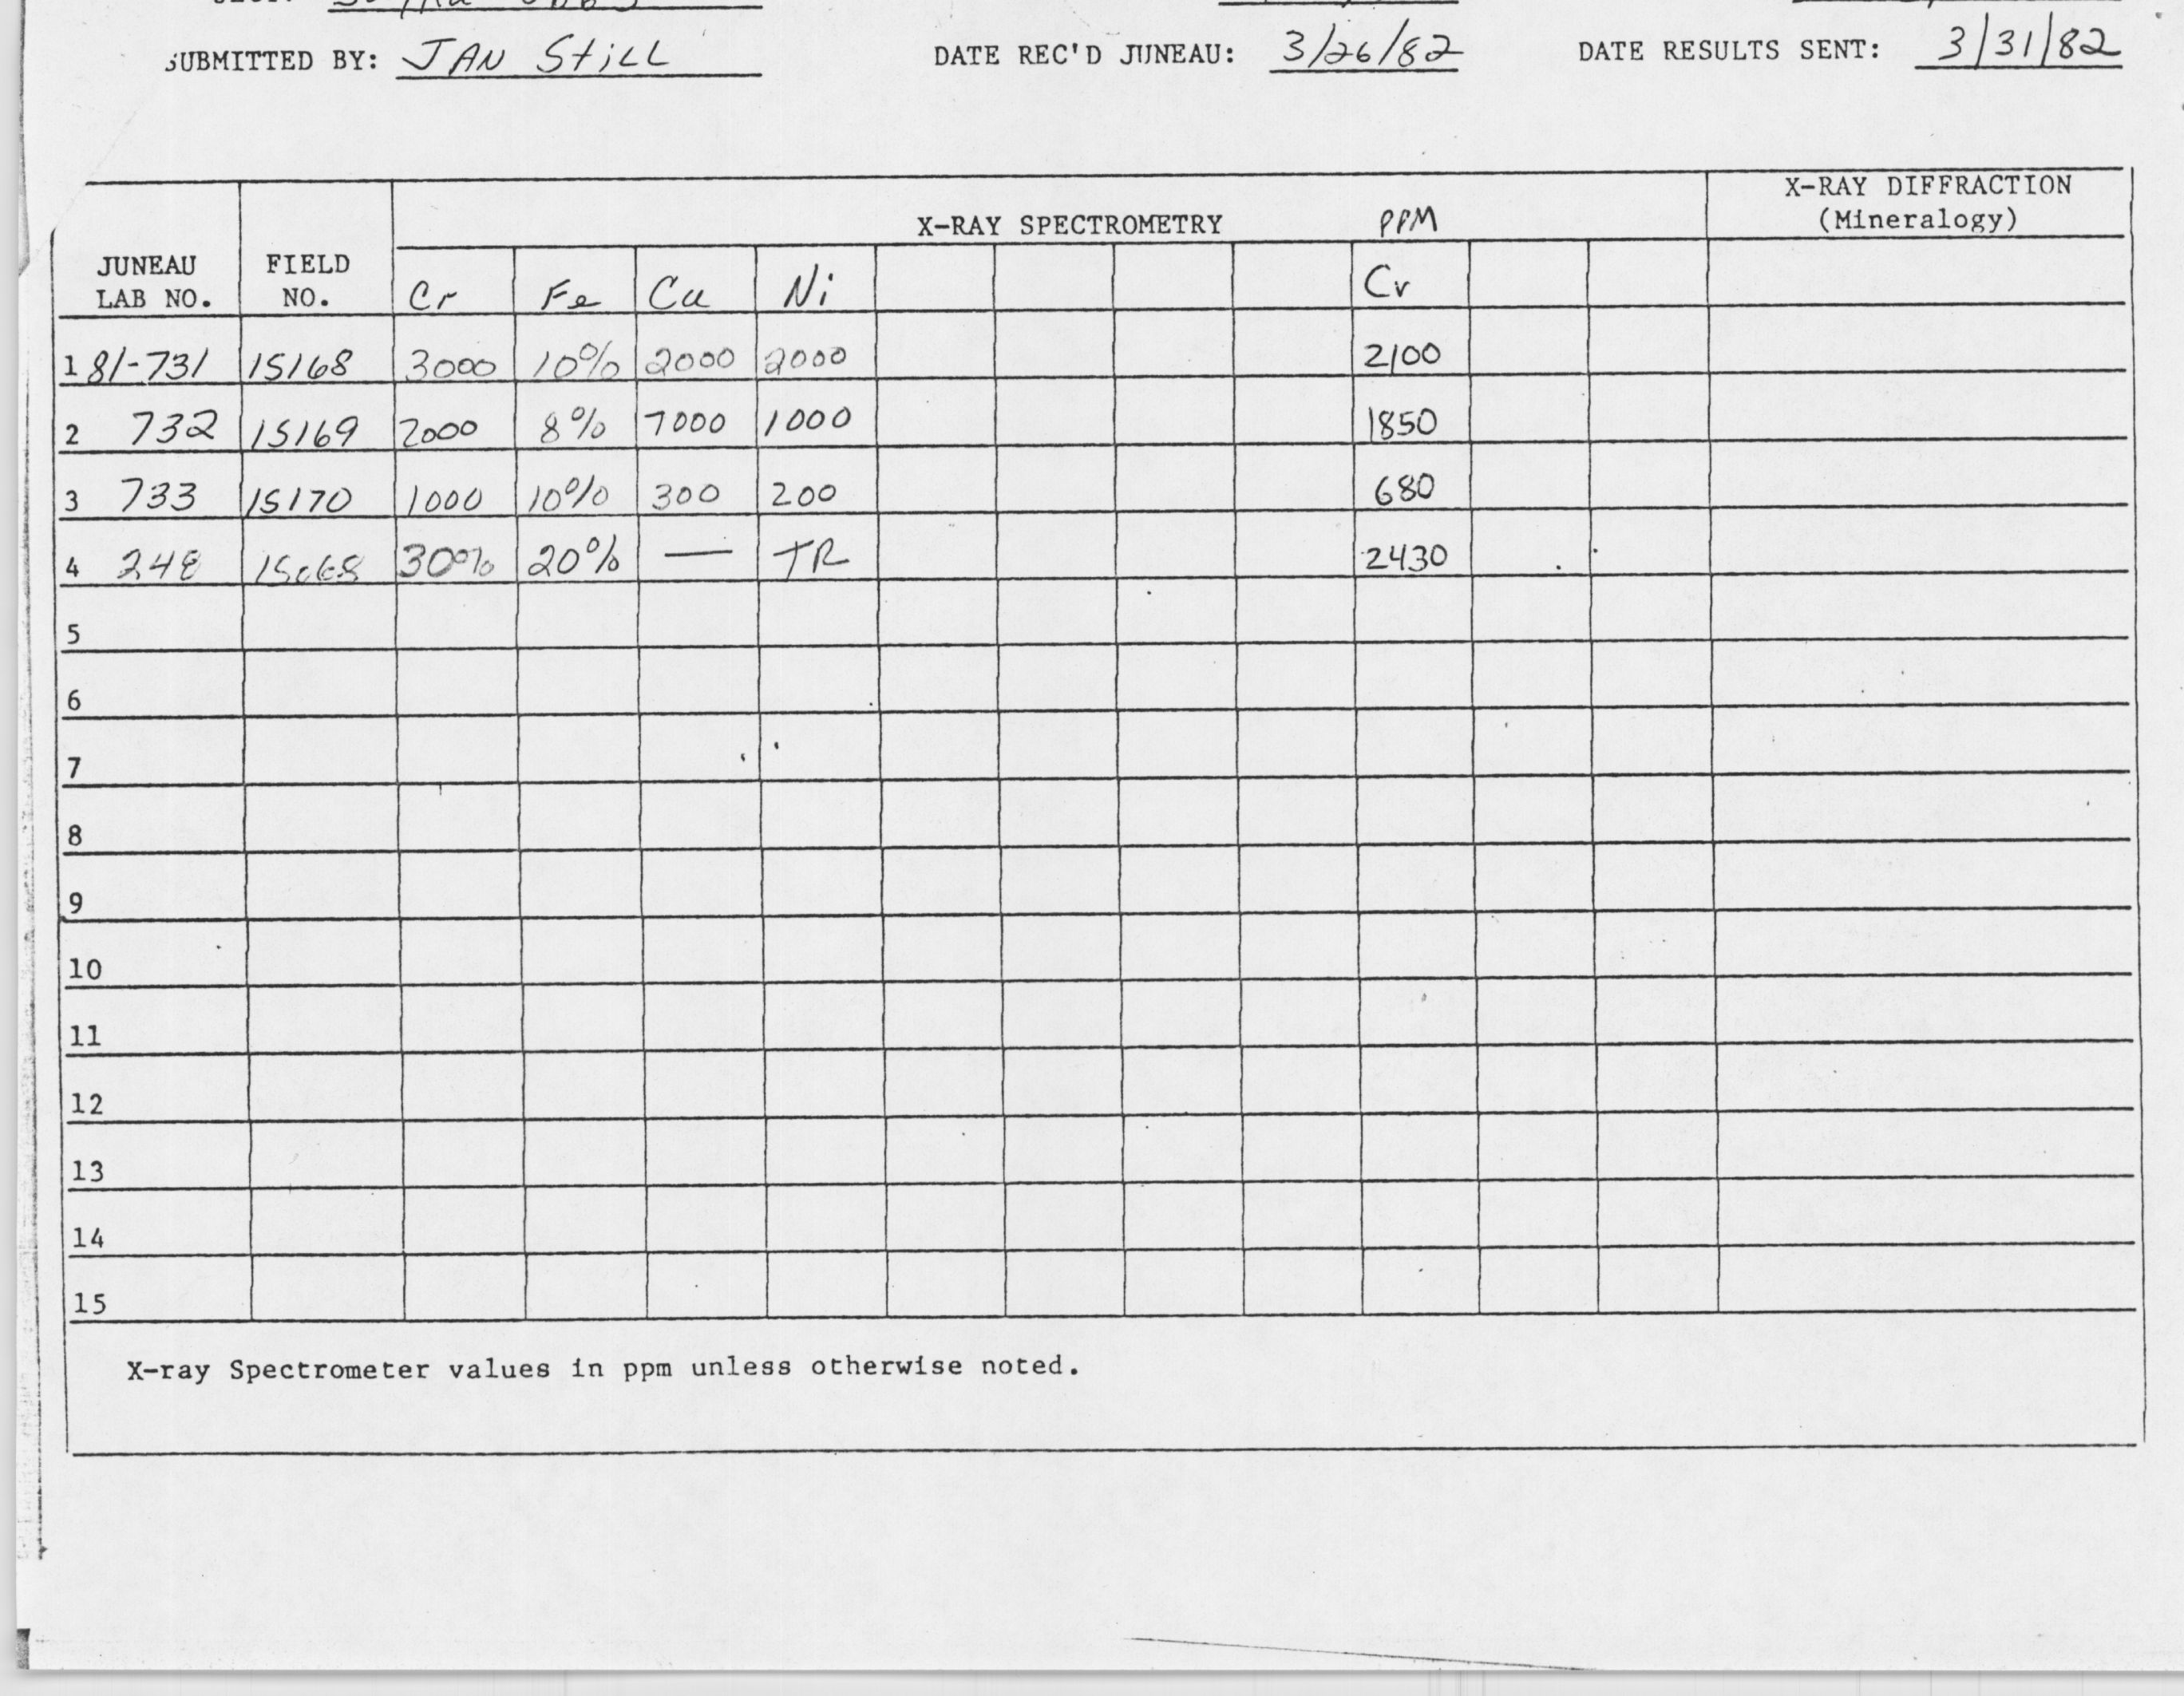 SUBMITTED BY: JAN StiLL DATE REC'D JUNEAU: 3/26/82 DATE RESULTS SENT: 3/31/82
X-RAY DIFFRACTION
X-RAY SPECTROMETRY PPM (Mineralogy)
JUNEAU FIELD
LAB NO. NO. Cr Fe Cu Ni Cr
1 81-731 1S168 3000 10% 2000 2000 2100
2 732 1S169 2000 8% 7000 1000 1850
3 733 1S170 1000 10% 300 200 680
4 248 30% 20% — TR 2430
5
6
7
8
9
10
11
12
13
14
15
X-ray Spectrometer values in ppm unless otherwise noted.